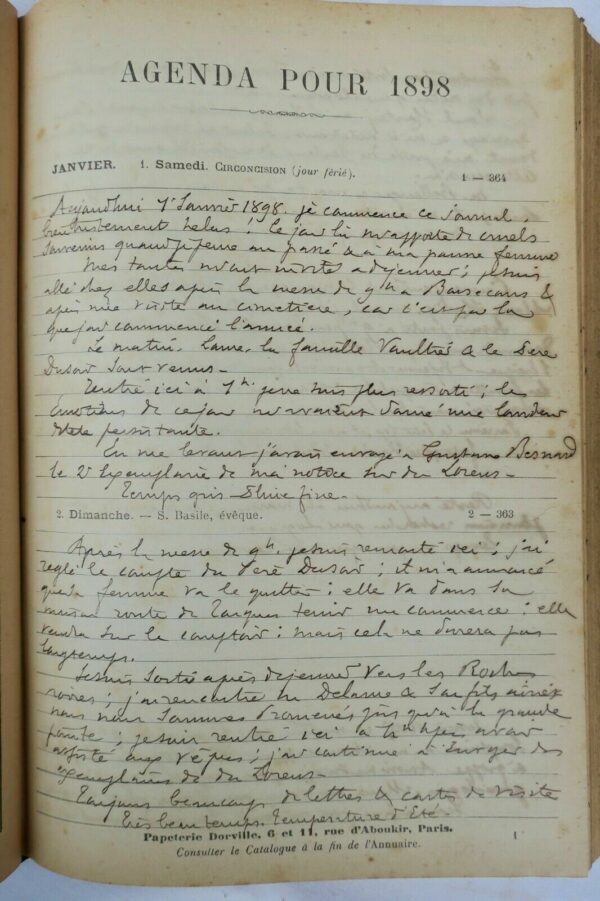 AGENDA POUR 1898
JANVIER. 1. Samedi. CIRCONCISION (jour férié). 1 — 364
Aujourd'hui 1er Janvier 1898. je commence ce journal,
bien tristement helas! Ce jour là m'apporte de cruels
souvenirs quand je pense au passé & à ma pauvre femme
Mes tantes m'ont invité a dejeuner; je suis
allé chez elles après la messe de 9h a &
après une visite au cimetière, car c'est par là
que j'ai commencé l'année.
Le matin, la famille Vaultré & le Père
Dusoir sont venus.
Rentré ici à 1h. je ne suis plus ressorti; les
émotions de ce jour m'avaient donné une lourdeur
de tête persistante.
En me levant j'avais envoyé a Gustave Besnard
le 2e exemplaire de ma notice sur du
Temps gris Pluie fine.
2. Dimanche. — S. Basile, évêque. 2 — 363
Après la messe de 9h. je suis remonté ici; j'ai
reglé le compte du Père Dusoir; il m'a annoncé
que sa femme va le quitter: elle va dans la
route de tenir un commerce: elle
vendra sur le comptoir: mais cela ne durera pas
longtemps.
Je suis sorti après dejeuner vers les Roches
noires; j'ai rencontré Delarme & son fils ainé &
nous nous sommes promenés jusqu'à la grande
pointe; je suis rentré ici a 4h après avoir
assisté aux vêpres; j'ai continué a envoyer des
exemplaires de du
Toujours beaucoup de lettres & cartes de visite
Très beau temps. Température d'Eté.
Papeterie Dorville, 6 et 11, rue d'Aboukir, Paris.
Consulter le Catalogue à la fin de l'Annuaire.
1